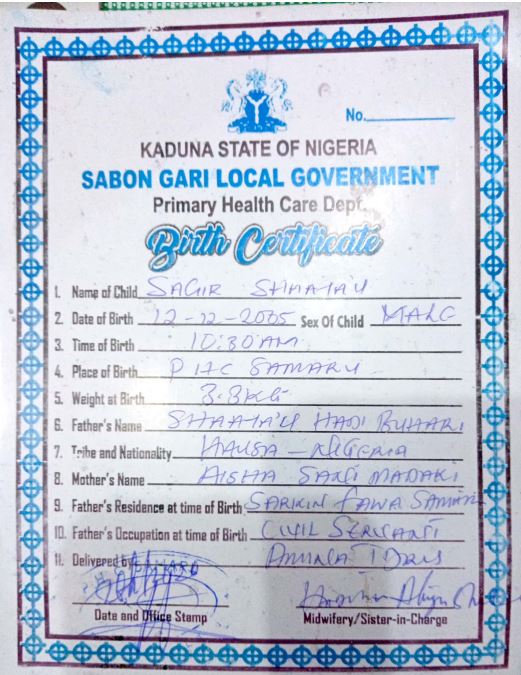 No.
KADUNA STATE OF NIGERIA
SABON GARI LOCAL GOVERNMENT
Primary Health Care Dept.
Birth Certificate
1. Name of Child SAGIR SHAAYA'U
2. Date of Birth 12-12-2005 Sex Of Child MALE
3. Time of Birth 10:30AM
4. Place of Birth PHC SAMARU
5. Weight at Birth 3.3KG
6. Father's Name SHAAYA'U HADI BUHARI
7. Tribe and Nationality HAUSA - NIGERIA
8. Mother's Name AISHA SANI MADAKI
9. Father's Residence at time of Birth SARKIN PAWA
10. Father's Occupation at time of Birth CIVIL SERVANT
11. Delivered by IDRIS
Date and Office Stamp
Midwifery/Sister-in-Charge